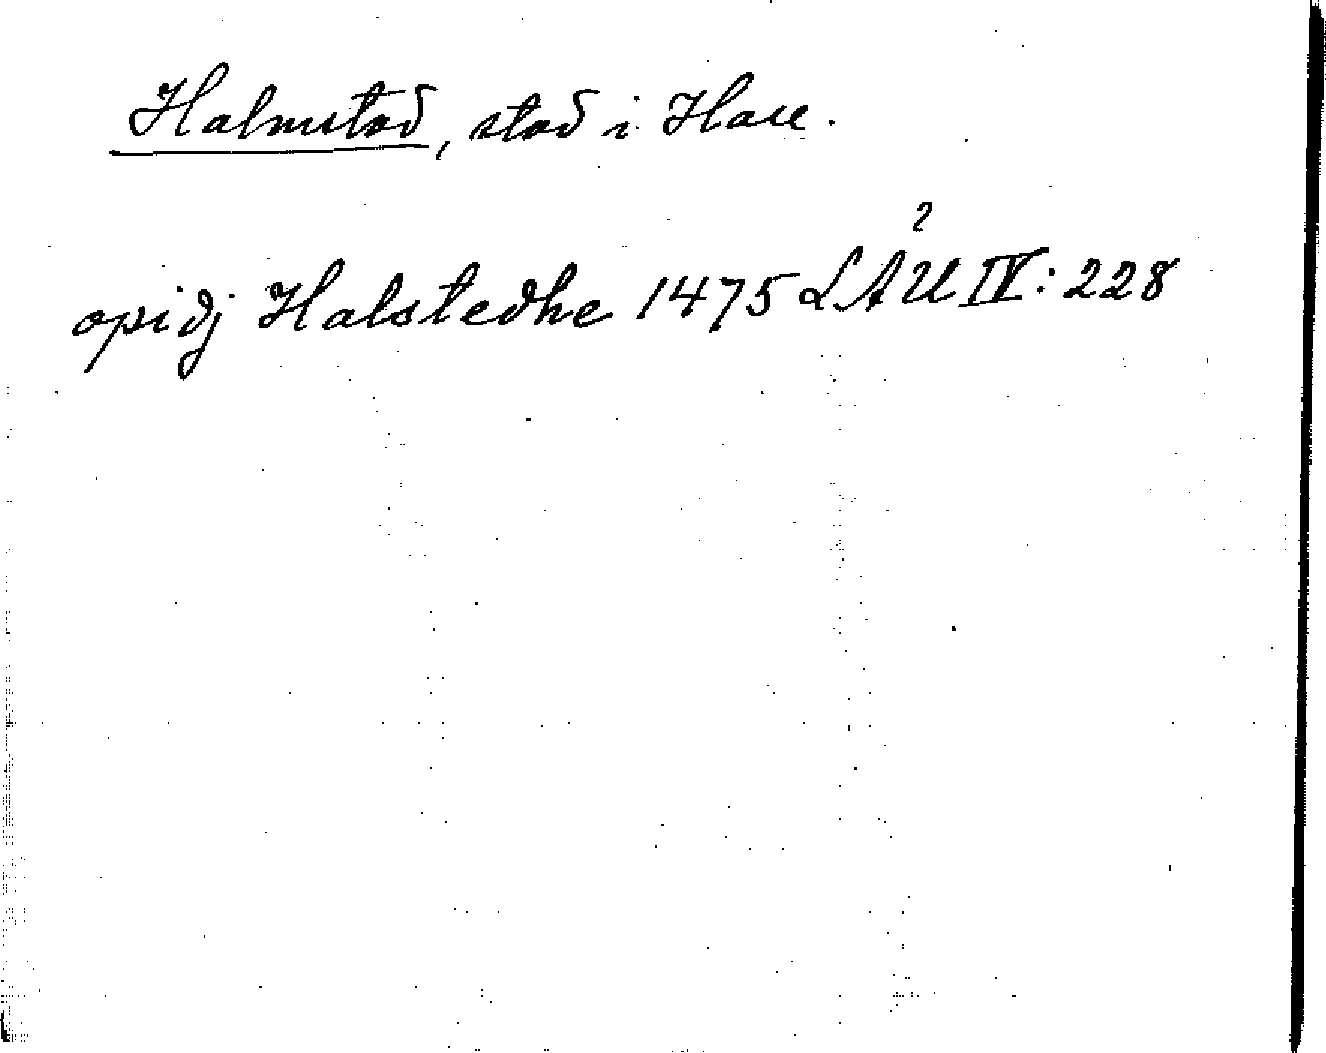 Halmstad, stad i Hall.
opidj Halstedhe 1475 LÄU IV: 228